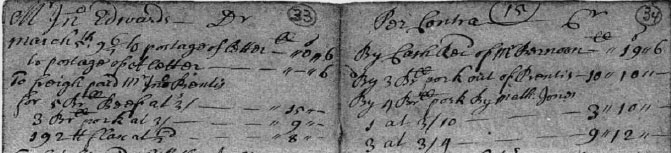 Mr Jno Edwards — Dr (33)
march 5th 96 to postage of Letter — " 0 " 6
to postage of Letter — " — " 6
To freigh paid Mr Jno Prentis
for 5 Brls Beef at 3/ — " 15 " —
3 Brls pork at 3/ — " 9 " —
192 tt flax at — " 8 " —
Per Contra (15) Cr (34)
By Cash Rec of Mr — " 19 " 6
By 3 Brls pork out of Prentis — 10 " 10 " —
By 4 Brls pork by math Jones
1 at 3/10 — 3 " 10 " —
3 at 3/4 — 9 " 12 " —